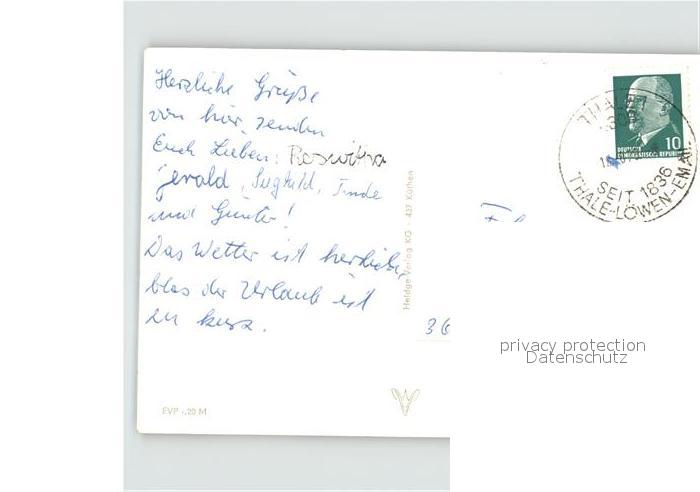 Herzliche Grüße
von hier senden
Euch Lieben: Roswitha
Gerald, Sieghild, Trude
und Günter!
Das Wetter ist herrlich,
blos der Urlaub ist
zu kurz.
EVP -.20 M
Heldge-Verlag KG · 437 Köthen
36
THALE 1
10
DEUTSCHE
DEMOKRATISCHE REPUBLIK
SEIT 1836
THALE-LÖWEN-EMAIL
privacy protection
Datenschutz